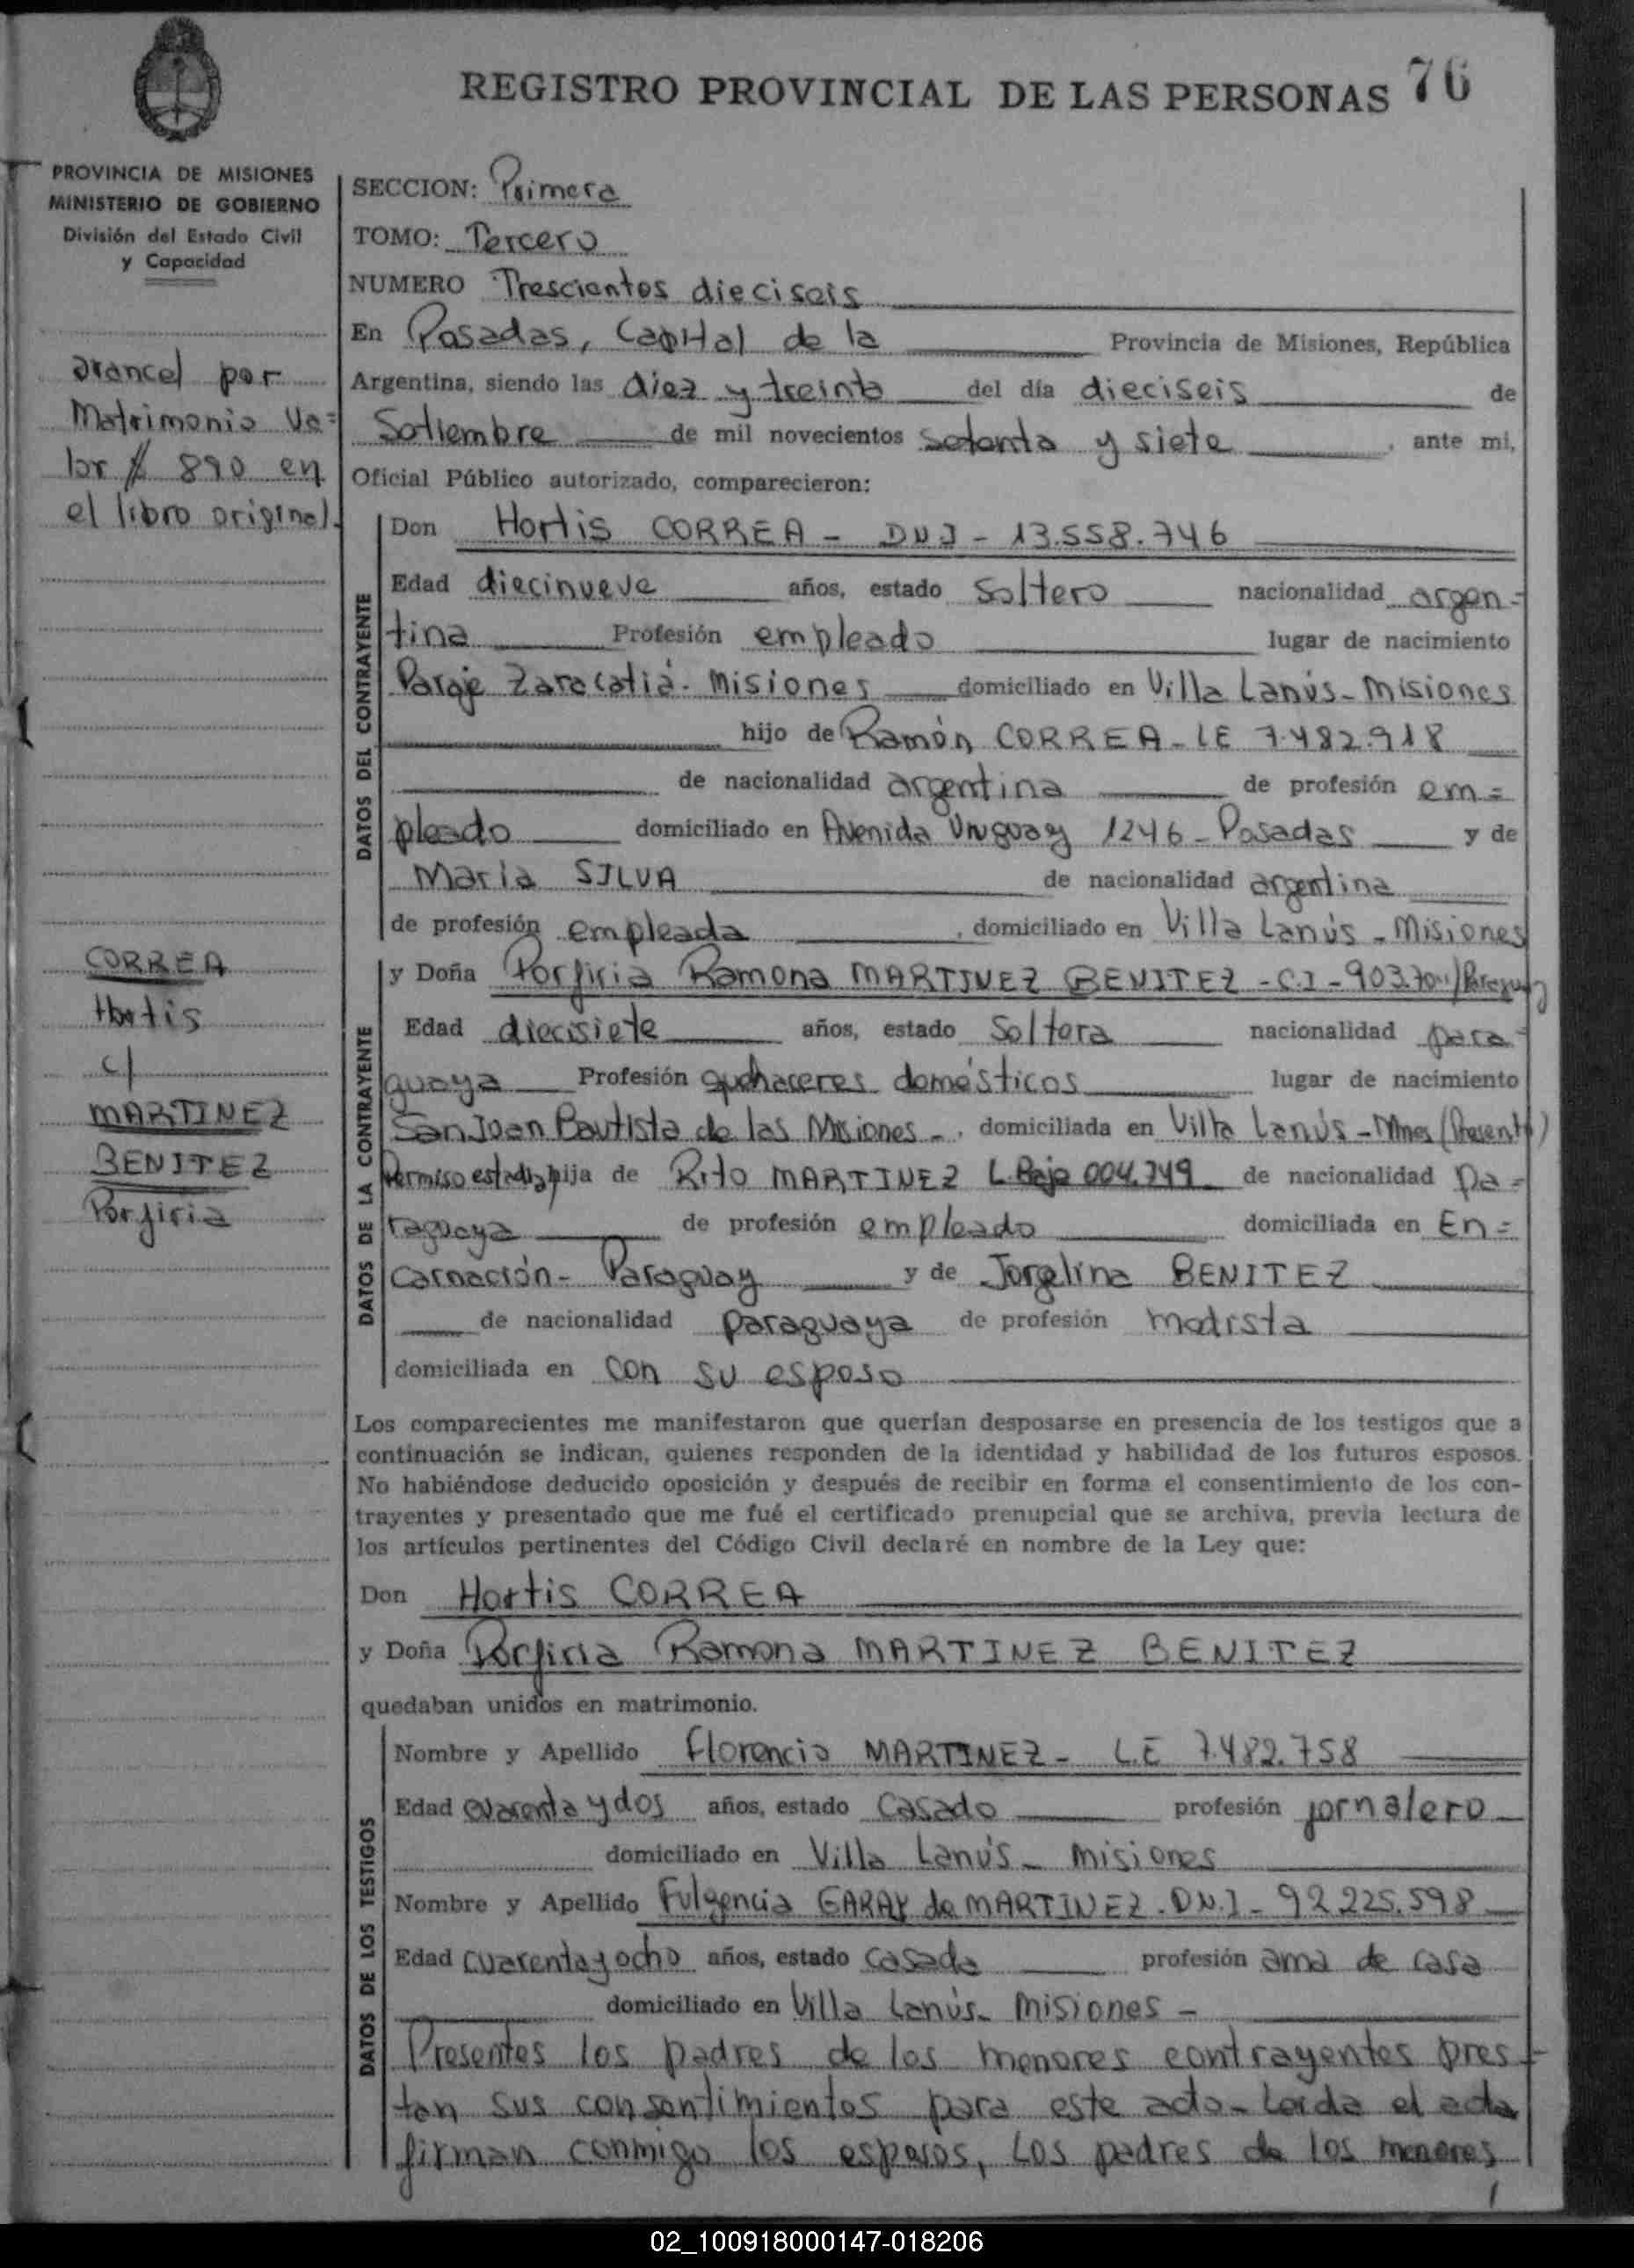 REGISTRO PROVINCIAL DE LAS PERSONAS 76
PROVINCIA DE MISIONES
MINISTERIO DE GOBIERNO
División del Estado Civil
y Capacidad
arancel por
Matrimonio Va=
lor $ 890 en
el libro original.
CORREA
Hortis
c/
MARTINEZ
BENITEZ
Porfiria
SECCION: Primera
TOMO: Tercero
NUMERO Trescientos dieciseis
En Posadas, Capital de la Provincia de Misiones, República
Argentina, siendo las diez y treinta del día dieciseis de
Setiembre de mil novecientos setenta y siete, ante mi,
Oficial Público autorizado, comparecieron:
DATOS DEL CONTRAYENTE
Don Hortis CORREA - DNI - 13.558.746
Edad diecinueve años, estado Soltero nacionalidad argen=
tina Profesión empleado lugar de nacimiento
Paraje Zaracatiá. Misiones domiciliado en Villa Lanús - Misiones
hijo de Ramón CORREA - LE 7.482.918
de nacionalidad argentina de profesión em=
pleado domiciliado en Avenida Uruguay 1246 - Posadas y de
Maria SILVA de nacionalidad argentina
de profesión empleada, domiciliado en Villa Lanús - Misiones
DATOS DE LA CONTRAYENTE
y Doña Porfiria Ramona MARTINEZ BENITEZ - C.I - 903.70 /Paraguay
Edad diecisiete años, estado Soltera nacionalidad para=
guaya Profesión quehaceres domésticos lugar de nacimiento
San Juan Bautista de las Misiones -, domiciliada en Villa Lanús - Mnes (Presento)
Permiso estadía hija de Rito MARTINEZ L. Baja 004.749 de nacionalidad pa=
raguaya de profesión empleado domiciliada en En=
carnación - Paraguay y de Jorgelina BENITEZ
de nacionalidad paraguaya de profesión modista
domiciliada en con su esposo
Los comparecientes me manifestaron que querían desposarse en presencia de los testigos que a
continuación se indican, quienes responden de la identidad y habilidad de los futuros esposos.
No habiéndose deducido oposición y después de recibir en forma el consentimiento de los con-
trayentes y presentado que me fué el certificado prenupcial que se archiva, previa lectura de
los artículos pertinentes del Código Civil declaré en nombre de la Ley que:
Don Hortis CORREA
y Doña Porfiria Ramona MARTINEZ BENITEZ
quedaban unidos en matrimonio.
DATOS DE LOS TESTIGOS
Nombre y Apellido Florencio MARTINEZ - L.E 7.482.758
Edad cuarenta y dos años, estado Casado profesión jornalero
domiciliado en Villa Lanús - Misiones
Nombre y Apellido Fulgencia GARAY de MARTINEZ. D.N.I - 92.225.598
Edad cuarenta y ocho años, estado Casada profesión ama de casa
domiciliado en Villa Lanús - Misiones -
Presentes los padres de los menores contrayentes pres-
tan sus consentimientos para este acto - Leída el acta
firman conmigo los esposos, los padres de los menores
02_100918000147-018206